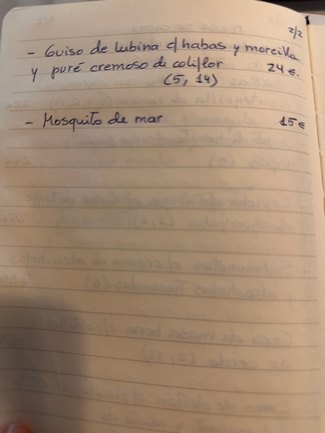 2/2
- Guiso de lubina c/habas y morcilla
y puré cremoso de coliflor 24 €.
(5, 14)
- Mosquito de mar 15 €